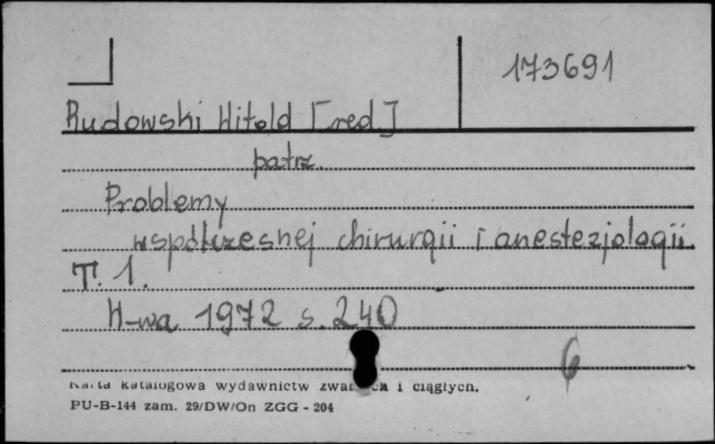 173691
Rudowski Witold [red]
patrz.
Problemy
współczesnej chirurgii i anestezjologii.
T. 1.
W-wa 1972 s. 240
6
Karta katalogowa wydawnictw i ciągłych.
PU-B-144 zam. 29/DW/On ZGG - 204